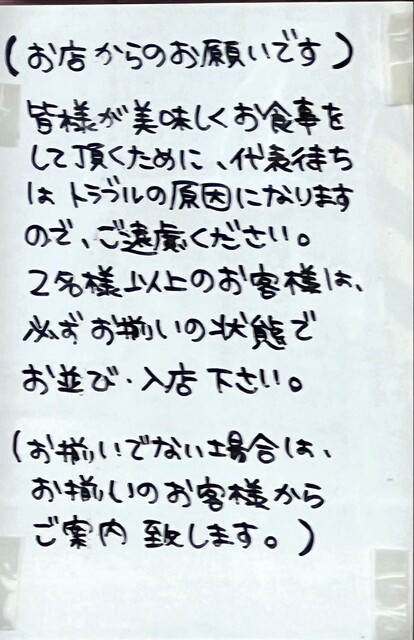 (お店からのお願いです)
皆様が美味しくお食事を
して頂くために、代表待ち
はトラブルの原因になります
ので、ご遠慮ください。
2名様以上のお客様は、
必ずお揃いの状態で
お並び・入店下さい。
(お揃いでない場合は、
お揃いのお客様から
ご案内致します。)